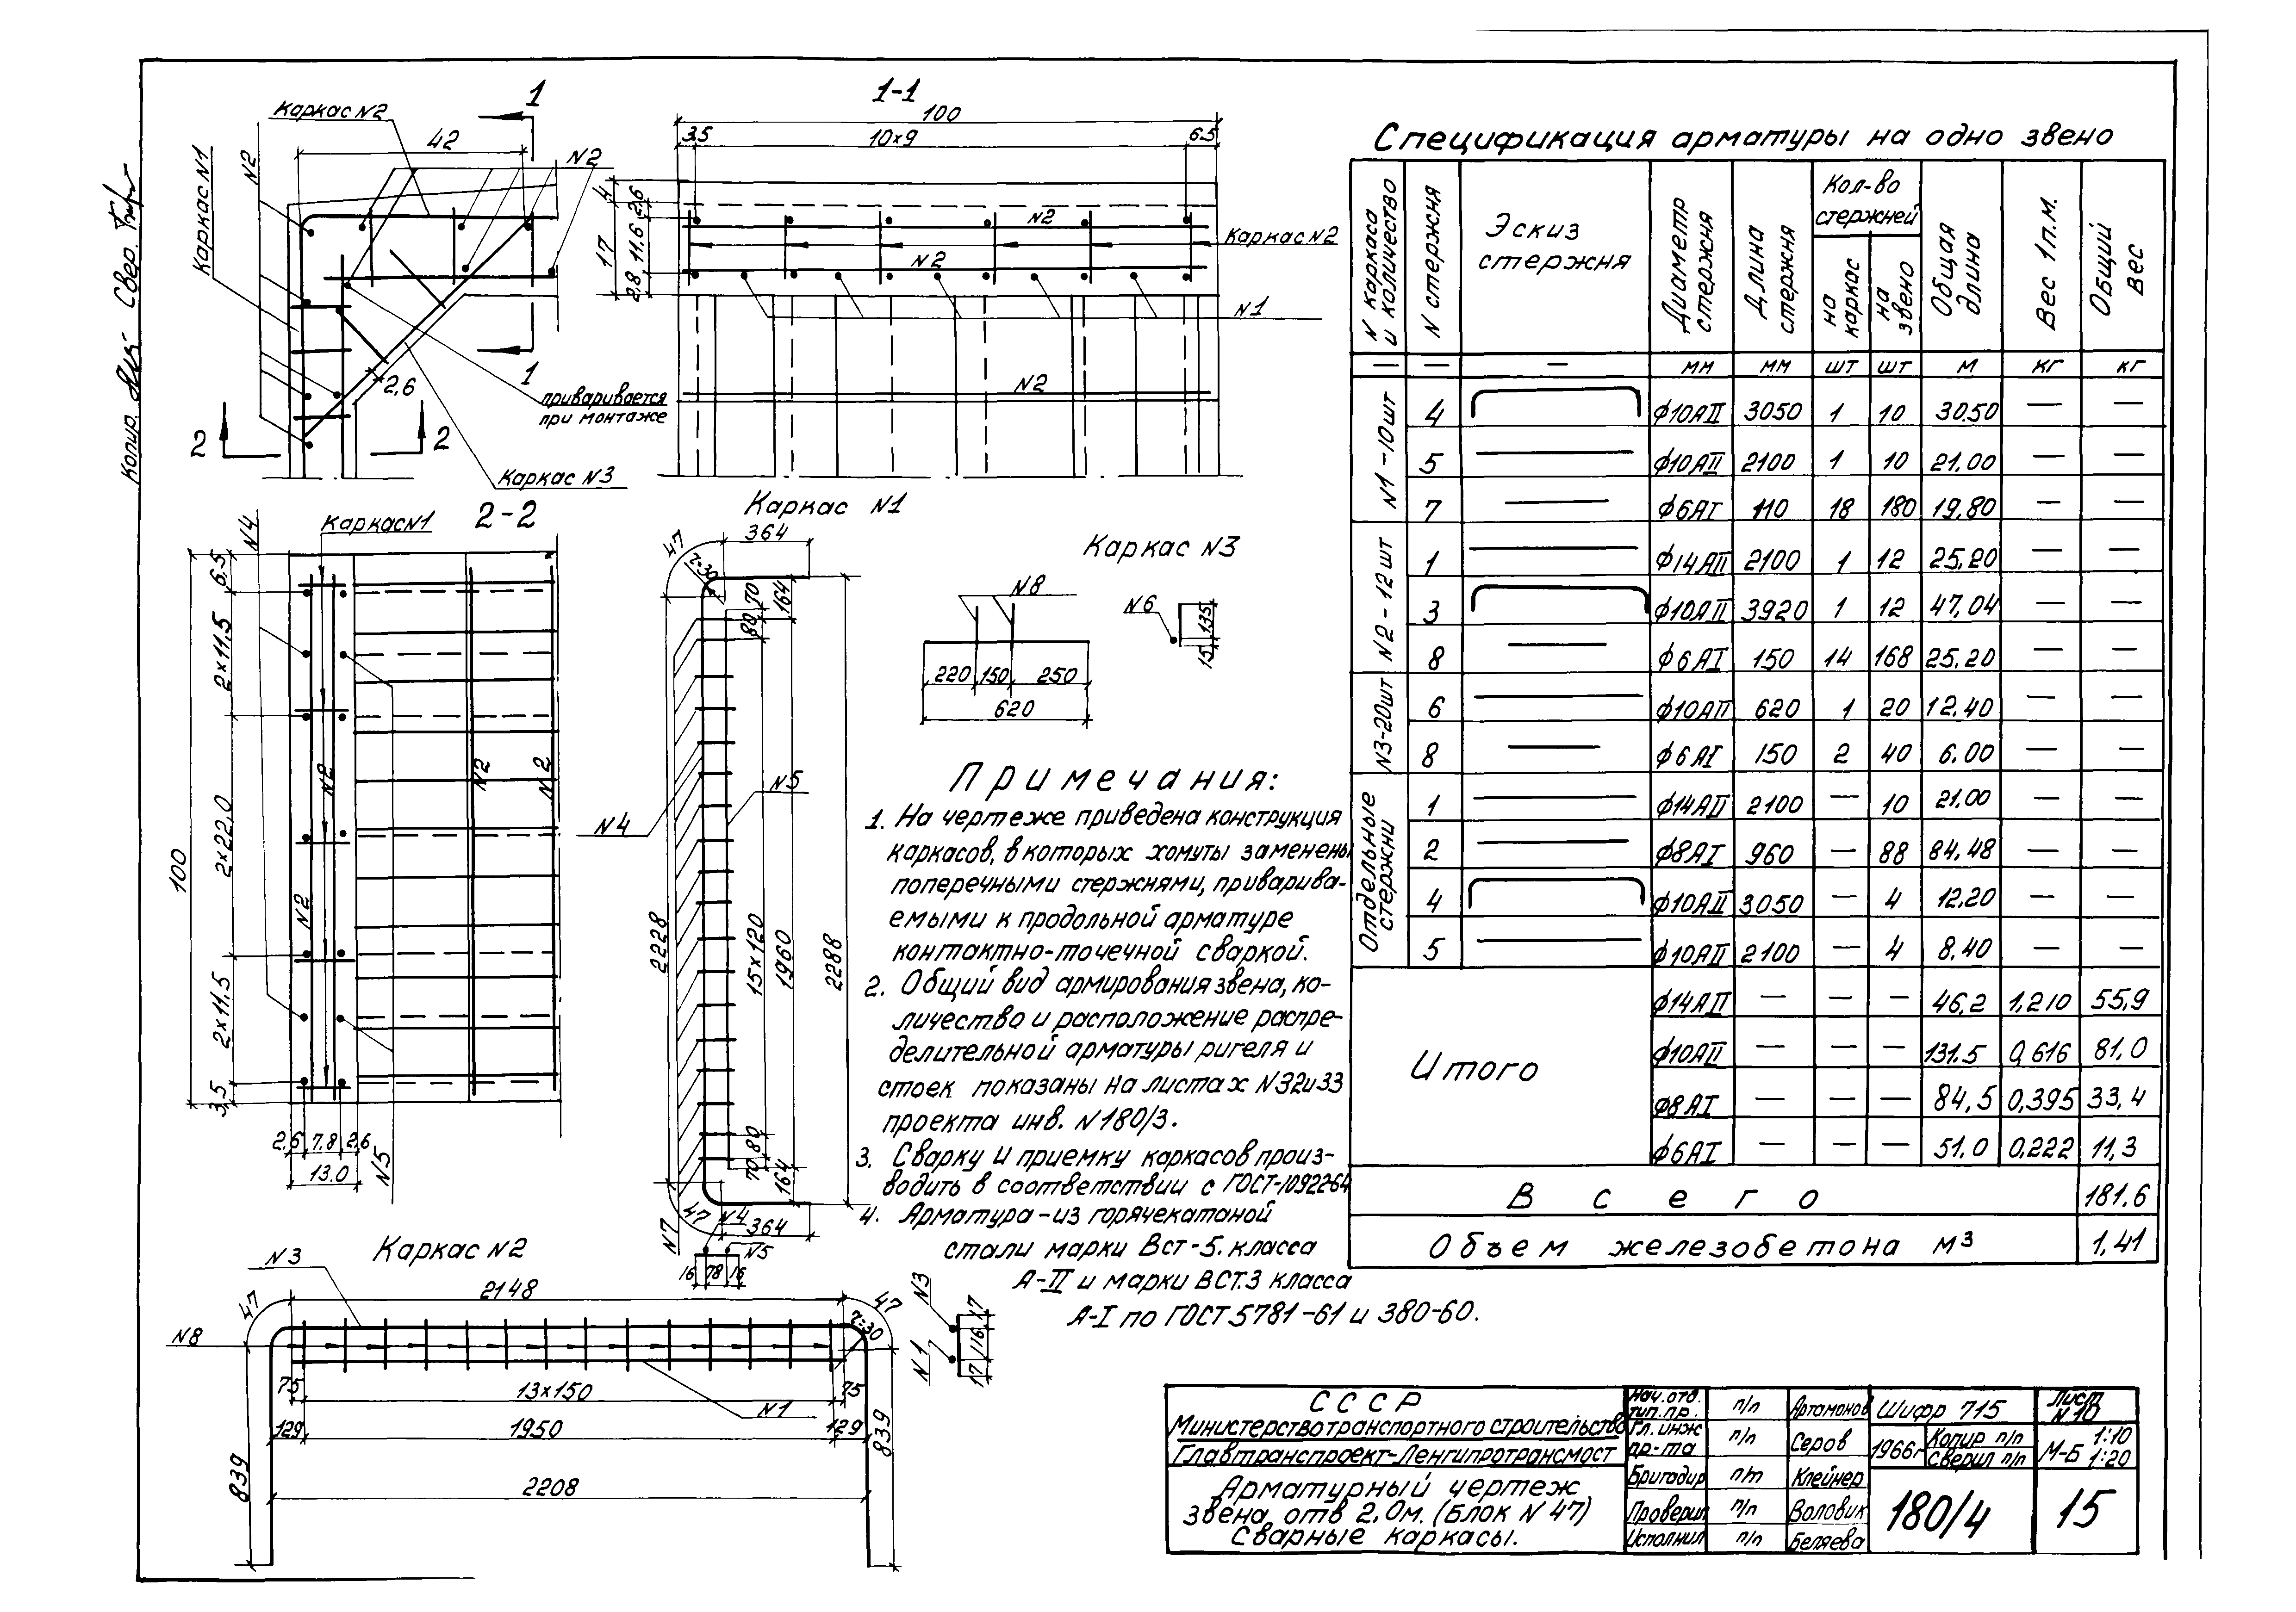 Копир. Свер.
1-1
Каркас N2
1
42
N2
N2
Каркас N1
2,6
1
привариваетсЯ
при монтаже
2
2
Каркас N3
100
3,5
10×9
6,5
4
2,6
17
11,6
2,8
N2
N2
Каркас N2
N1
N2
2-2
Каркас N1
N4
6,5
2×11,5
2×22,0
100
2×11,5
3,5
N2
N2
N2
N2
2,6
7,8
2,6
13.0
N5
Каркас N1
364
47
r=30
70
80
164
N4
N5
2228
15×120
1960
2288
70 80
164
47
364
N7
N4
N5
16
78
16
Каркас N3
N8
N6
135
15
220
150
250
620
Каркас N2
N3
2148
47
47
r=30
N8
75
13×150
75
N1
129
1950
129
839
839
2208
N3
N1
17
116
17
Примечания:
1. На чертеже приведена конструкция
каркасов, в которых хомуты заменены
поперечными стержнями, приварива-
емыми к продольной арматуре
контактно-точечной сваркой.
2. Общий вид армирования звена, ко-
личество и расположение распре-
делительной арматуры ригеля и
стоек показаны на листах N32и33
проекта инв. N180/3.
3. Сварку и приемку каркасов произ-
водить в соответствии с ГОСТ-10922-64
4. Арматура-из горячекатаной
стали марки Вст-5. класса
А-II и марки ВСТ.3 класса
А-I по ГОСТ 5781-61 и 380-60.
Спецификация арматуры на одно звено
N каркаса и количество
N стержня
Эскиз стержня
Диаметр стержня
Длина стержня
Кол-во стержней
на каркас
на звено
Общая длина
Вес 1п.м.
Общий вес
— — — мм мм шт шт м кг кг
N1-10шт
4 ф10АII 3050 1 10 30.50 — —
5 ф10АII 2100 1 10 21.00 — —
7 ф6АI 110 18 180 19.80 — —
N2-12шт
1 ф14АII 2100 1 12 25.20 — —
3 ф10АII 3920 1 12 47,04 — —
8 ф6АI 150 14 168 25.20 — —
N3-20шт
6 ф10АII 620 1 20 12.40 — —
8 ф6АI 150 2 40 6.00 — —
Отдельные стержни
1 ф14АII 2100 — 10 21.00 — —
2 ф8АI 960 — 88 84,48 — —
4 ф10АII 3050 — 4 12.20 — —
5 ф10АII 2100 — 4 8.40 — —
Итого
ф14АII — — — 46,2 1,210 55,9
ф10АII — — — 131.5 0,616 81,0
ф8АI — — — 84,5 0,395 33,4
ф6АI — — — 51.0 0,222 11,3
Всего 181.6
Объем железобетона м³ 1,41
СССР
Министерство транспортного строительства
Главтранспроект-Ленгипротрансмост
Арматурный чертеж
звена отв 2,0м. (Блок N 47)
Сварные каркасы.
Нач.отд. тип.пр. п/п Артамонов
Гл. инж пр-та п/п Серов
Бригадир п/п Клейнер
Проверил п/п Воловик
Исполнил п/п Беляева
Шифр 715
Лист N10
1966г
Копир п/п
Сверил п/п
М-Б 1:10 1:20
180/4
15